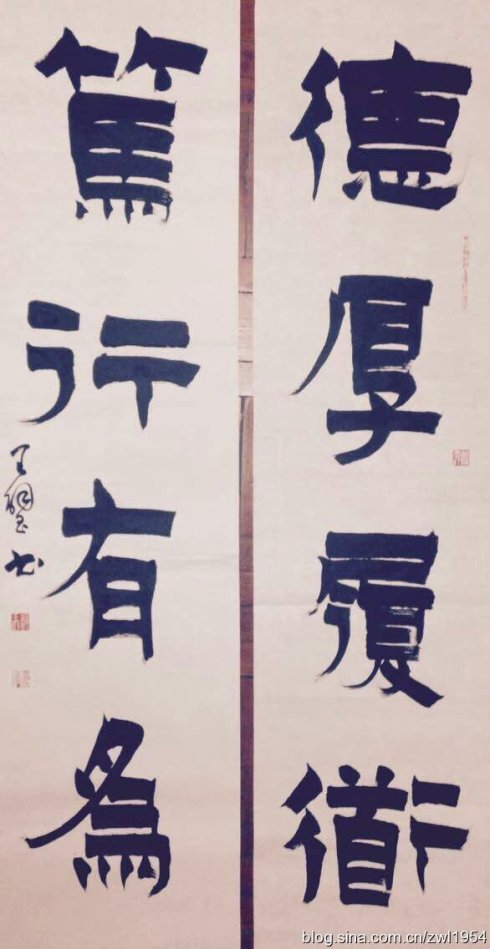 德厚履衜
篤行有為
blog.sina.com.cn/zwl1954